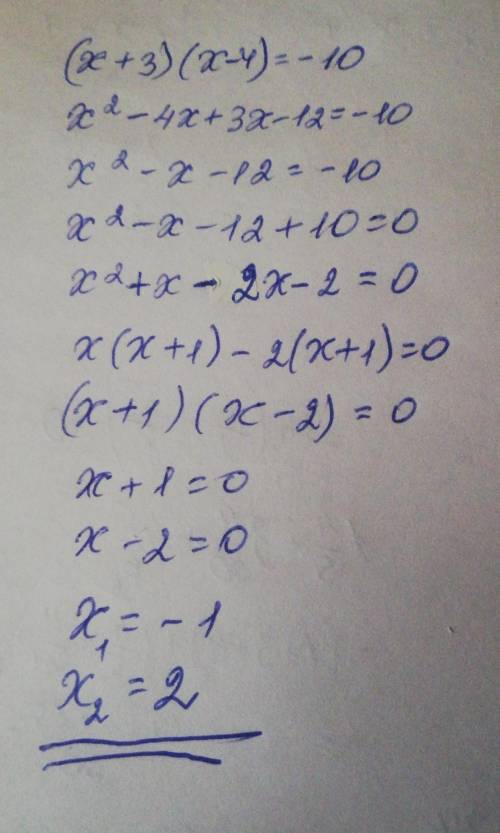 (x+3)(x-4)=-10
x²-4x+3x-12=-10
x²-x-12=-10
x²-x-12+10=0
x²+x-2x-2=0
x(x+1)-2(x+1)=0
(x+1)(x-2)=0
x+1=0
x-2=0
x₁=-1
x₂=2